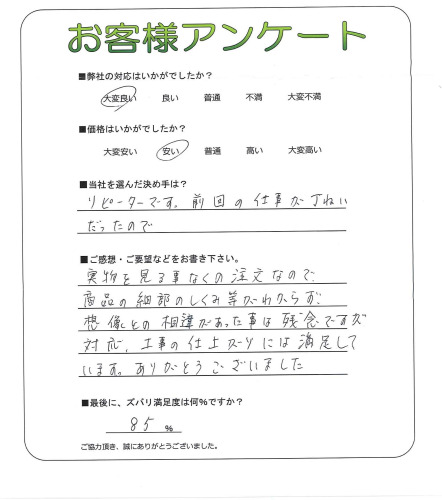 お客様アンケート
■弊社の対応はいかがでしたか?
大変良い 良い 普通 不満 大変不満
■価格はいかがでしたか?
大変安い 安い 普通 高い 大変高い
■当社を選んだ決め手は?
リピーターです。前回の仕事が丁ねい
だったので
■ご感想・ご要望などをお書き下さい。
実物を見る事なくの注文なので、
商品の細部のしくみ等がわからず、
想像との相違があった事は残念ですが
対応、工事の仕上がりには満足して
います。ありがとうございました
■最後に、ズバリ満足度は何%ですか?
85 %
ご協力頂き、誠にありがとうございました。